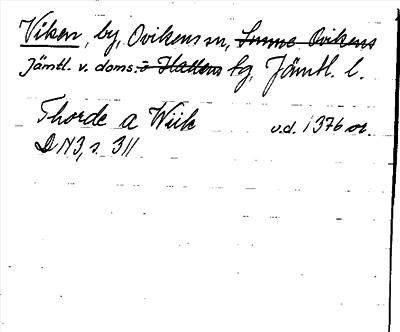 Viken, by, Ovikens sn, Sunne Ovikens
Jämtl. v. doms. o Hallens tg, Jämtl. l.
Thorde a Wiik v.d. 1376 or.
DN 3, s. 311